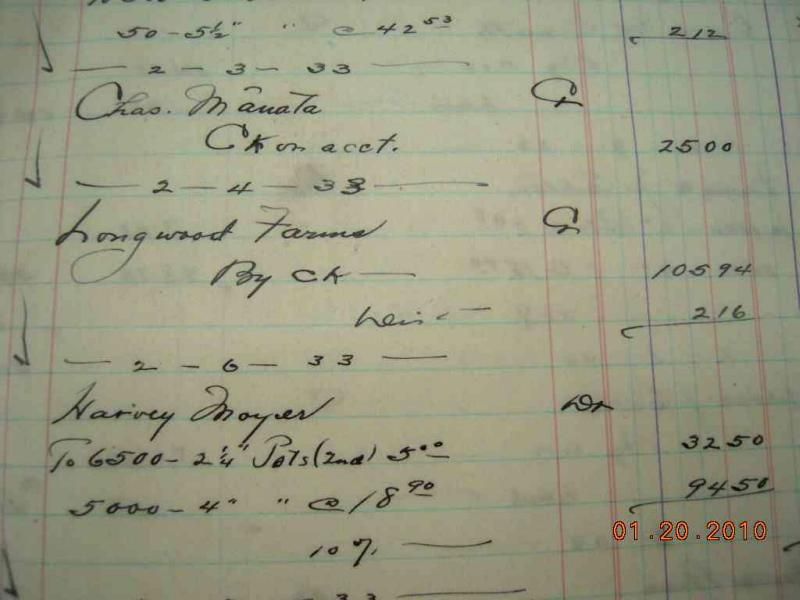 50 - 5½" " @ 42 53 212
2 - 3 - 33
Chas. Manata Cr
CK on acct. 2500
2 - 4 - 33
Longwood Farms Cr
By CK 10594
216
2 - 6 - 33
Harvey Moyer Dr
To 6500 - 2¼" Pots (2nd) 5 00 3250
5000 - 4" " @ 18 90 9450
10%
01.20.2010
33